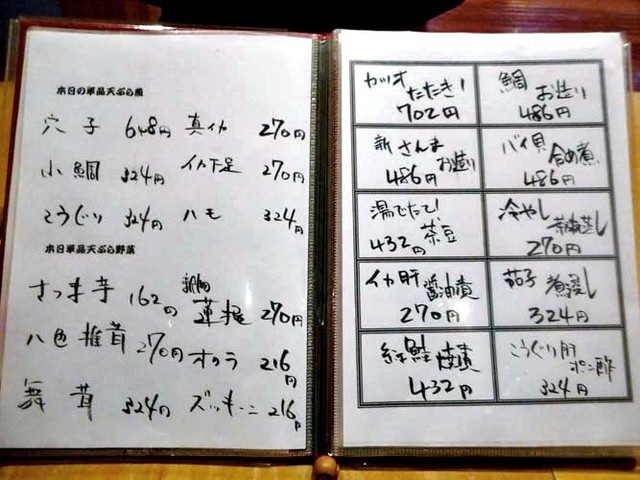 本日の単品天ぷら魚
穴子 648円 真イカ 270円
小鯛 324円 イカ下足 270円
こうぐり 324円 ハモ 324円
本日単品天ぷら野菜
さつま芋 162円 蓮根 270円
八色椎茸 270円 オクラ 216円
舞茸 324円 ズッキーニ 216円
カツオ
たたき!
702円
鯛
お造り
486円
新さんま
お造り
486円
バイ貝
含め煮
486円
湯でたて!
茶豆
432円
冷やし
茶碗蒸し
270円
イカ肝
醤油漬
270円
茄子
煮浸し
324円
紅鮭
焼漬
432円
こうぐり肝
ポン酢
324円